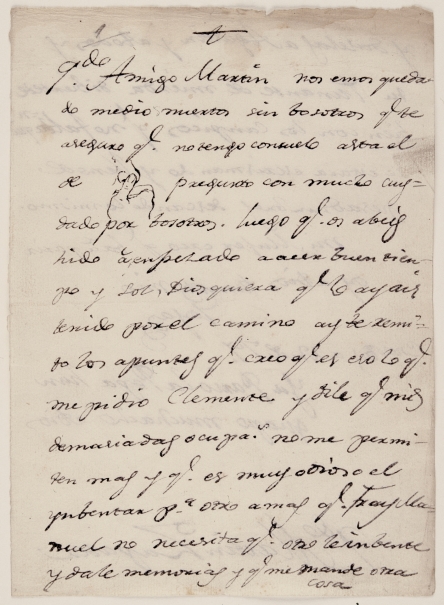 qdo Amigo Martin nos emos queda-
do medio muertos sin bosotros qe te
aseguro qe. no tengo consuelo asta el
de pregunto con mucho cuy-
dado por bosotros. luego qe. os abeis
hido a enpezado a acer buen tien-
po y sol, Dios quiera qe. lo ayais
tenido por el camino ay te remi-
to los apuntes qe. creo qe. es eso lo qe.
me pidio Clemente y dile qe. mis
demasiadas ocupas. no me permi-
ten mas y qe. es muy odioso el
ynbentar pa. otro a mas qe. Fray Ma-
nuel no necesita qe. otro le inbente
y dale memorias y qe me mande otra
cosa